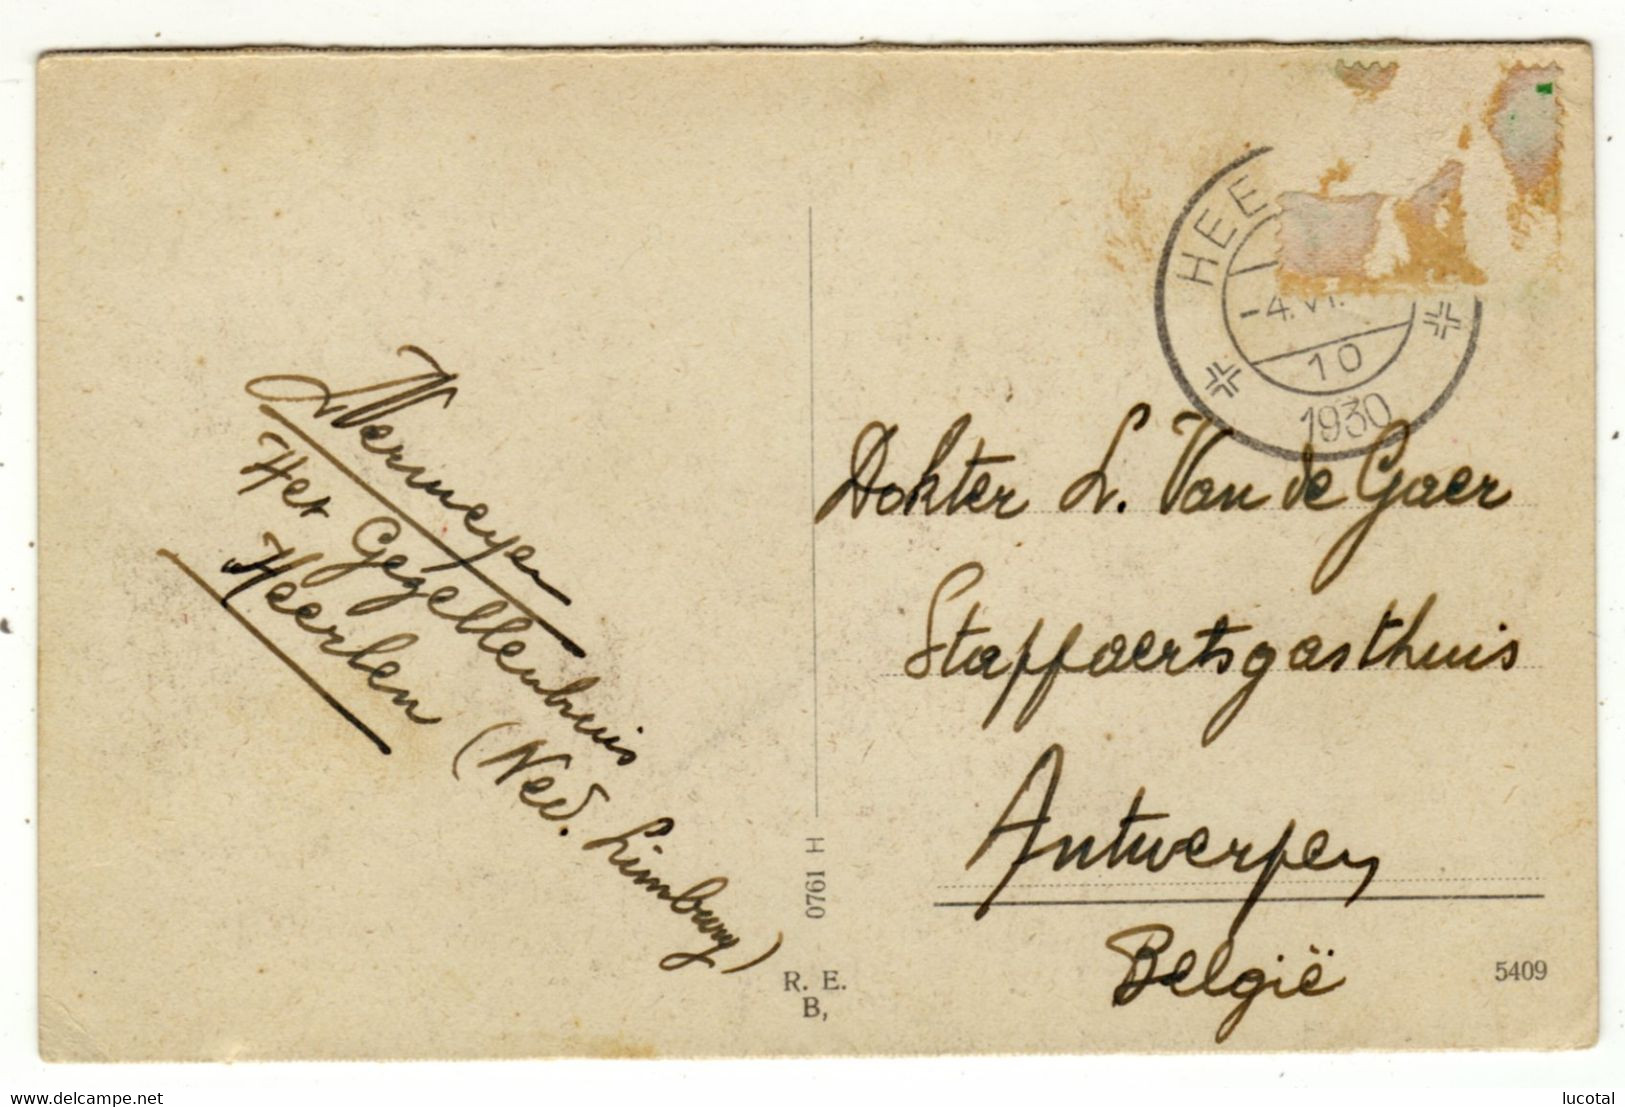 HEE
-4.VI.
10
1930
Vermeyen
Het Gezellenhuis
Heerlen (Ned. Limburg)
Dokter L. Van de Gaer
Staffaertsgasthuis
Antwerpen
België
0761 H
R. E.
B,
5409
delcampe.net
lucotal